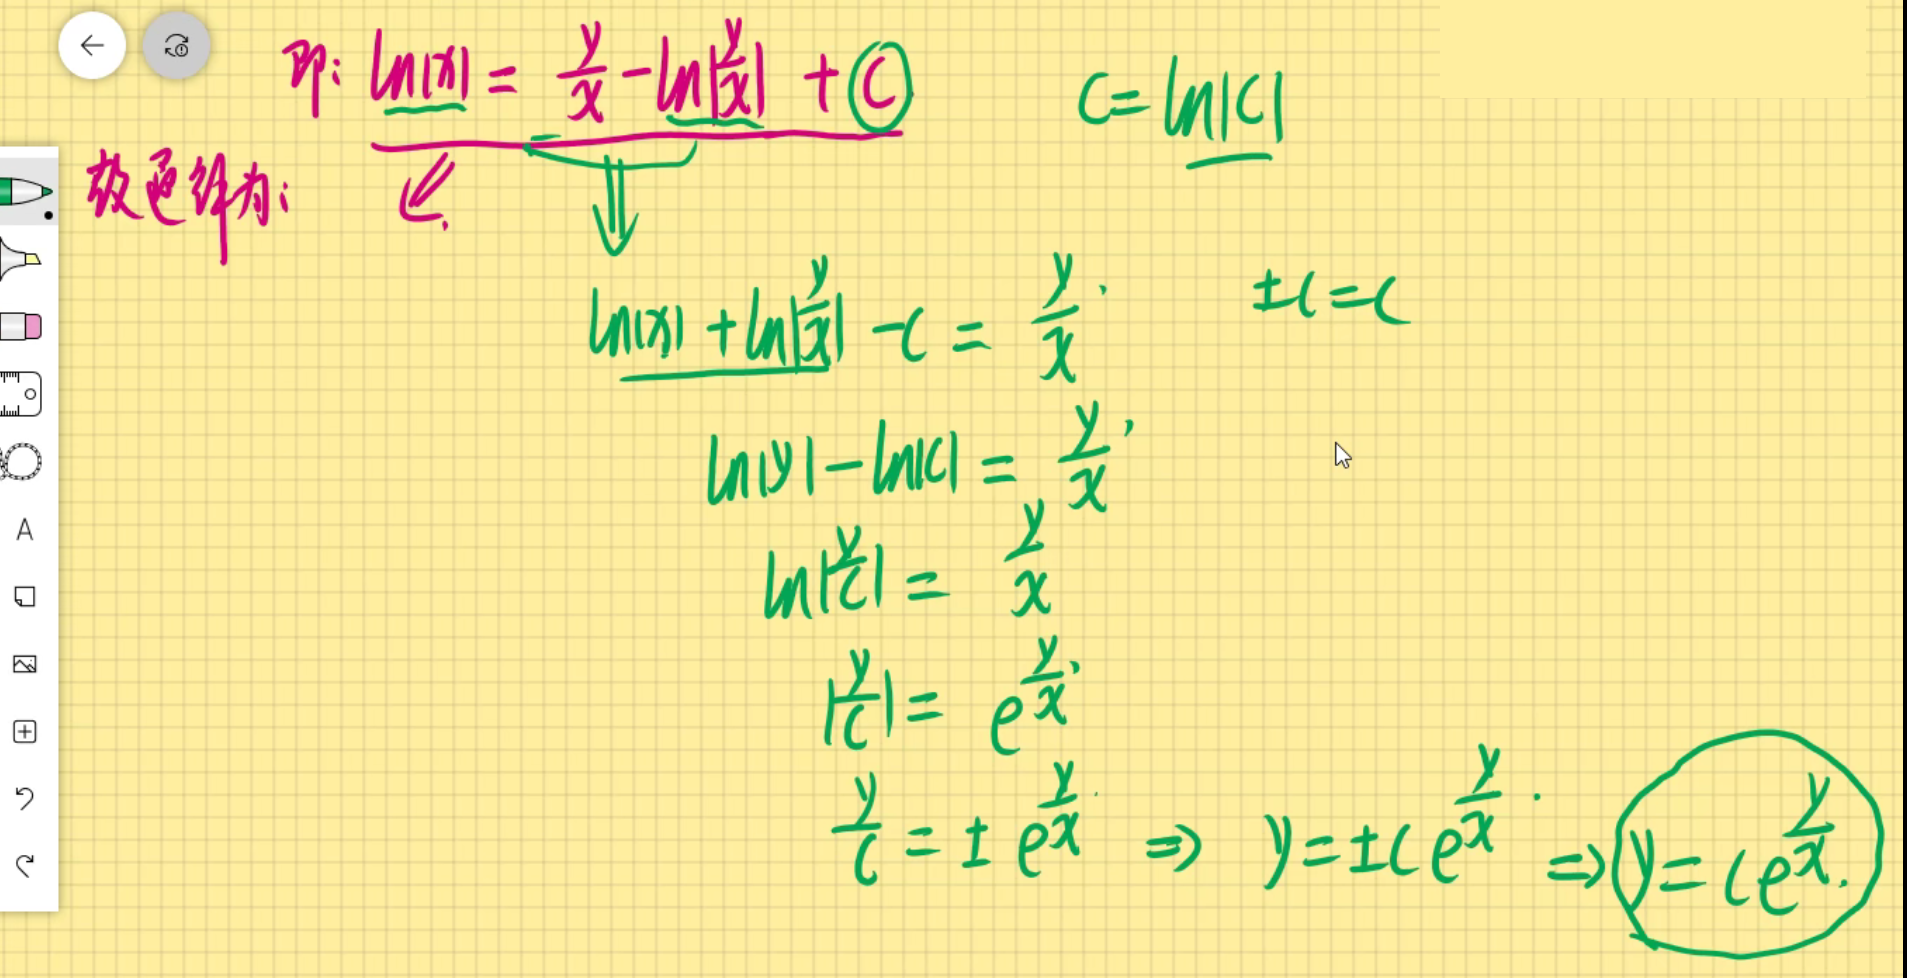 即: ln|x| = y/x - ln|y/x| + C    C = ln|C|
故通解为:
ln|x| + ln|y/x| - C = y/x.    ±C = C
ln|y| - ln|C| = y/x,
ln|y/C| = y/x
|y/C| = e^(y/x).
y/C = ± e^(y/x). ⇒ y = ±C e^(y/x). ⇒ y = C e^(y/x).
A